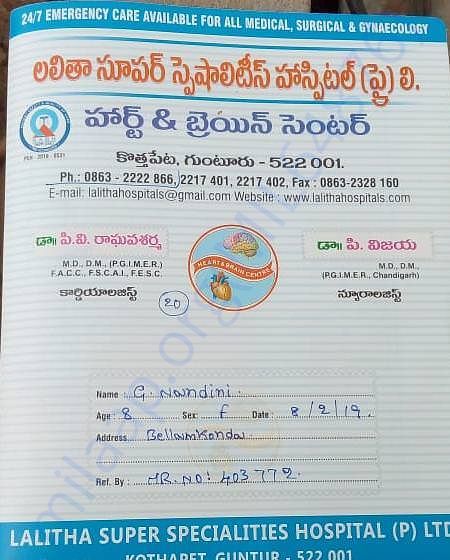 24/7 EMERGENCY CARE AVAILABLE FOR ALL MEDICAL, SURGICAL & GYNAECOLOGY
లలితా సూపర్ స్పెషాలిటీస్ హాస్పిటల్ (ప్రై) లి.
హార్ట్ & బ్రెయిన్ సెంటర్
కొత్తపేట, గుంటూరు - 522 001.
Ph.: 0863 - 2222 866, 2217 401, 2217 402, Fax : 0863-2328 160
E-mail: lalithahospitals@gmail.com Website : www.lalithahospitals.com
డా॥ పి.వి. రాఘవశర్మ
M.D., D.M., (P.G.I.M.E.R.)
F.A.C.C., F.S.C.A.I., F.E.S.C.
కార్డియాలజిస్ట్
HEART & BRAIN CENTRE
డా॥ పి. విజయ
M.D., D.M.,
(P.G.I.M.E.R., Chandigarh)
న్యూరాలజిస్ట్
20
Name : G. Nandini
Age : 8 Sex: F Date : 8/2/19.
Address Bellamkonda
Ref. By : MR.NO: 403772
LALITHA SUPER SPECIALITIES HOSPITAL (P) LTD
KOTHAPET, GUNTUR - 522 001